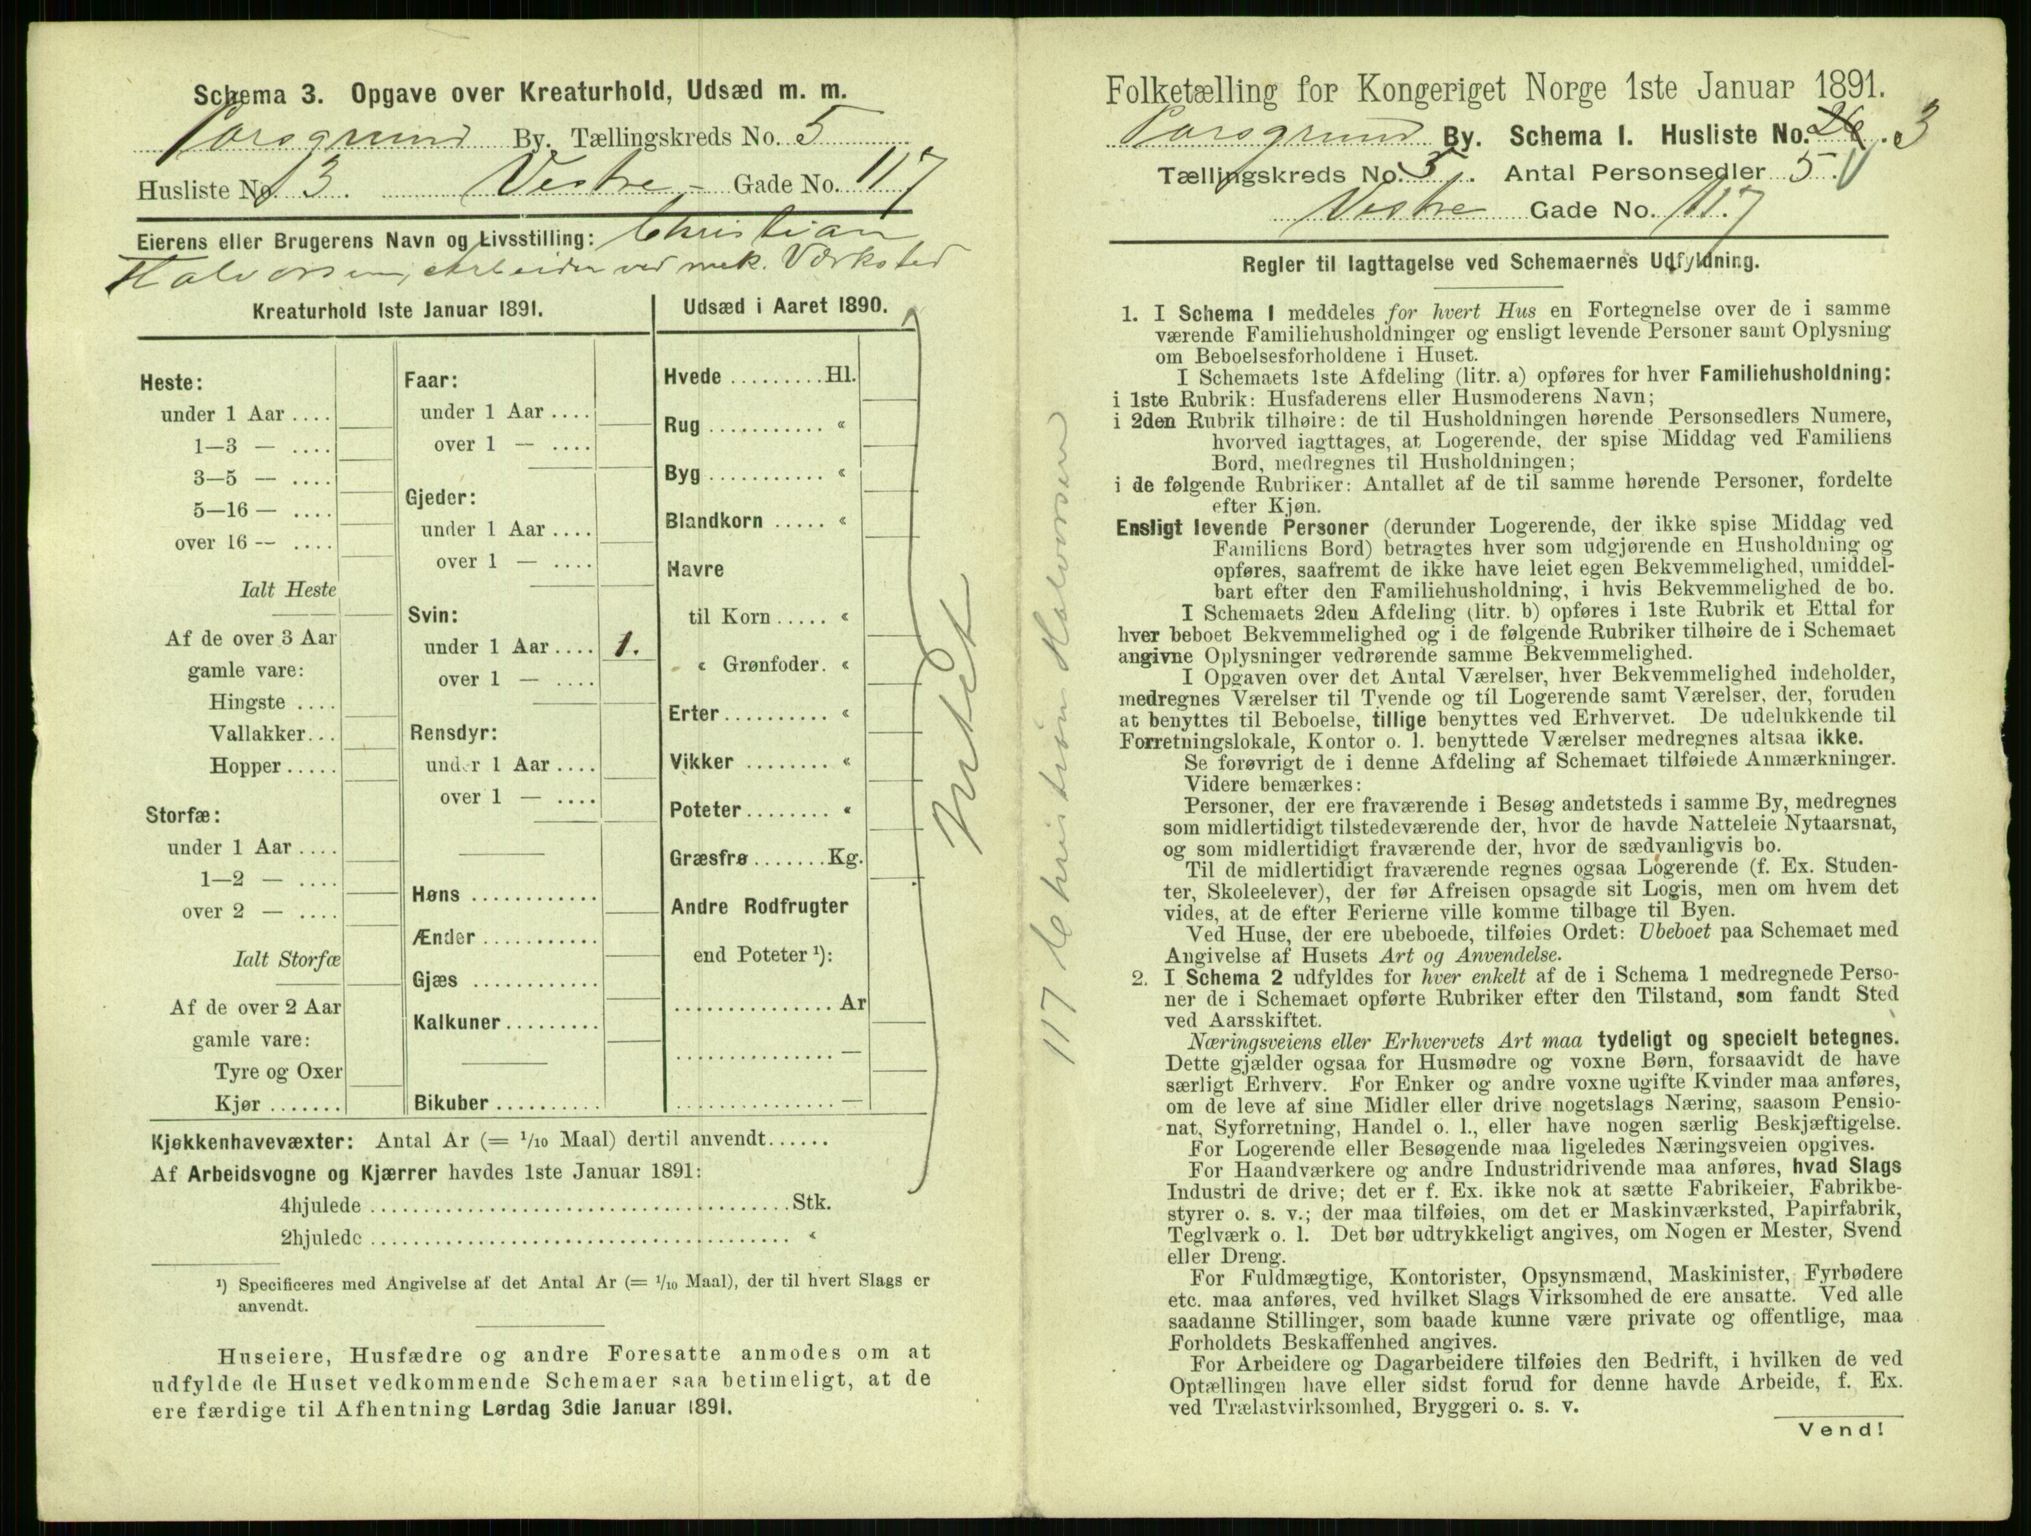 Schema 3. Opgave over Kreaturhold, Udsæd m. m.
Porsgrund By. Tællingskreds No. 5
Husliste No. 3. Vestre Gade No. 117
Eierens eller Brugerens Navn og Livsstilling: Christian
Halvorsen, Arbeider ved mek. Værksted
Kreaturhold 1ste Januar 1891.
Heste:
under 1 Aar ....
1—3 — ....
3—5 — ....
5—16 — ....
over 16 — ....
Ialt Heste
Af de over 3 Aar
gamle vare:
Hingste ....
Vallakker...
Hopper.....
Storfæ:
under 1 Aar ....
1—2 — ....
over 2 — ....
Ialt Storfæ
Af de over 2 Aar
gamle vare:
Tyre og Oxer
Kjør .......
Faar:
under 1 Aar ....
over 1 — ....
Gjeder:
under 1 Aar ....
over 1 — ....
Svin:
under 1 Aar .... 1.
over 1 — ....
Rensdyr:
under 1 Aar ....
over 1 — ....
Høns ............
Ænder ...........
Gjæs ............
Kalkuner.........
Bikuber ..........
Udsæd i Aaret 1890.
Hvede .........Hl.
Rug ........... «
Byg ........... «
Blandkorn ..... «
Havre
til Korn ..... «
« Grønfoder. «
Erter.......... «
Vikker ........ «
Poteter........ «
Græsfrø .......Kg.
Andre Rodfrugter
end Poteter ¹):
............... Ar
............... —
............... —
Intet
Kjøkkenhavevæxter: Antal Ar (= 1/10 Maal) dertil anvendt......
Af Arbeidsvogne og Kjærrer havdes 1ste Januar 1891:
4hjulede ......................................Stk.
2hjulede ...................................... «
¹) Specificeres med Angivelse af det Antal Ar (= 1/10 Maal), der til hvert Slags er
anvendt.
Huseiere, Husfædre og andre Foresatte anmodes om at
udfylde de Huset vedkommende Schemaer saa betimeligt, at de
ere færdige til Afhentning Lørdag 3die Januar 1891.
117 Christian Halvorsen
Folketælling for Kongeriget Norge 1ste Januar 1891.
Porsgrund By. Schema I. Husliste No. 26. 3
Tællingskreds No. 5. Antal Personsedler 5.
Vestre Gade No. 117
Regler til Iagttagelse ved Schemaernes Udfyldning.
1. I Schema 1 meddeles for hvert Hus en Fortegnelse over de i samme
værende Familiehusholdninger og ensligt levende Personer samt Oplysning
om Beboelsesforholdene i Huset.
I Schemaets 1ste Afdeling (litr. a) opføres for hver Familiehusholdning:
i 1ste Rubrik: Husfaderens eller Husmoderens Navn;
i 2den Rubrik tilhøire: de til Husholdningen hørende Personsedlers Numere,
hvorved iagttages, at Logerende, der spise Middag ved Familiens
Bord, medregnes til Husholdningen;
i de følgende Rubriker: Antallet af de til samme hørende Personer, fordelte
efter Kjøn.
Ensligt levende Personer (derunder Logerende, der ikke spise Middag ved
Familiens Bord) betragtes hver som udgjørende en Husholdning og
opføres, saafremt de ikke have leiet egen Bekvemmelighed, umiddel-
bart efter den Familiehusholdning, i hvis Bekvemmelighed de bo.
I Schemaets 2den Afdeling (litr. b) opføres i 1ste Rubrik et Ettal for
hver beboet Bekvemmelighed og i de følgende Rubriker tilhøire de i Schemaet
angivne Oplysninger vedrørende samme Bekvemmelighed.
I Opgaven over det Antal Værelser, hver Bekvemmelighed indeholder,
medregnes Værelser til Tyende og til Logerende samt Værelser, der, foruden
at benyttes til Beboelse, tillige benyttes ved Erhvervet. De udelukkende til
Forretningslokale, Kontor o. l. benyttede Værelser medregnes altsaa ikke.
Se forøvrigt de i denne Afdeling af Schemaet tilføiede Anmærkninger.
Videre bemærkes:
Personer, der ere fraværende i Besøg andetsteds i samme By, medregnes
som midlertidigt tilstedeværende der, hvor de havde Natteleie Nytaarsnat,
og som midlertidigt fraværende der, hvor de sædvanligvis bo.
Til de midlertidigt fraværende regnes ogsaa Logerende (f. Ex. Studen-
ter, Skoleelever), der før Afreisen opsagde sit Logis, men om hvem det
vides, at de efter Ferierne ville komme tilbage til Byen.
Ved Huse, der ere ubeboede, tilføies Ordet: Ubeboet paa Schemaet med
Angivelse af Husets Art og Anvendelse.
2. I Schema 2 udfyldes for hver enkelt af de i Schema 1 medregnede Perso-
ner de i Schemaet opførte Rubriker efter den Tilstand, som fandt Sted
ved Aarsskiftet.
Næringsveiens eller Erhvervets Art maa tydeligt og specielt betegnes.
Dette gjælder ogsaa for Husmødre og voxne Børn, forsaavidt de have
særligt Erhverv. For Enker og andre voxne ugifte Kvinder maa anføres,
om de leve af sine Midler eller drive nogetslags Næring, saasom Pensio-
nat, Syforretning, Handel o. l., eller have nogen særlig Beskjæftigelse.
For Logerende eller Besøgende maa ligeledes Næringsveien opgives.
For Haandværkere og andre Industridrivende maa anføres, hvad Slags
Industri de drive; det er f. Ex. ikke nok at sætte Fabrikeier, Fabrikbe-
styrer o. s. v.; der maa tilføies, om det er Maskinværksted, Papirfabrik,
Teglværk o. l. Det bør udtrykkeligt angives, om Nogen er Mester, Svend
eller Dreng.
For Fuldmægtige, Kontorister, Opsynsmænd, Maskinister, Fyrbødere
etc. maa anføres, ved hvilket Slags Virksomhed de ere ansatte. Ved alle
saadanne Stillinger, som baade kunne være private og offentlige, maa
Forholdets Beskaffenhed angives.
For Arbeidere og Dagarbeidere tilføies den Bedrift, i hvilken de ved
Optællingen have eller sidst forud for denne havde Arbeide, f. Ex.
ved Trælastvirksomhed, Bryggeri o. s. v.
Vend!